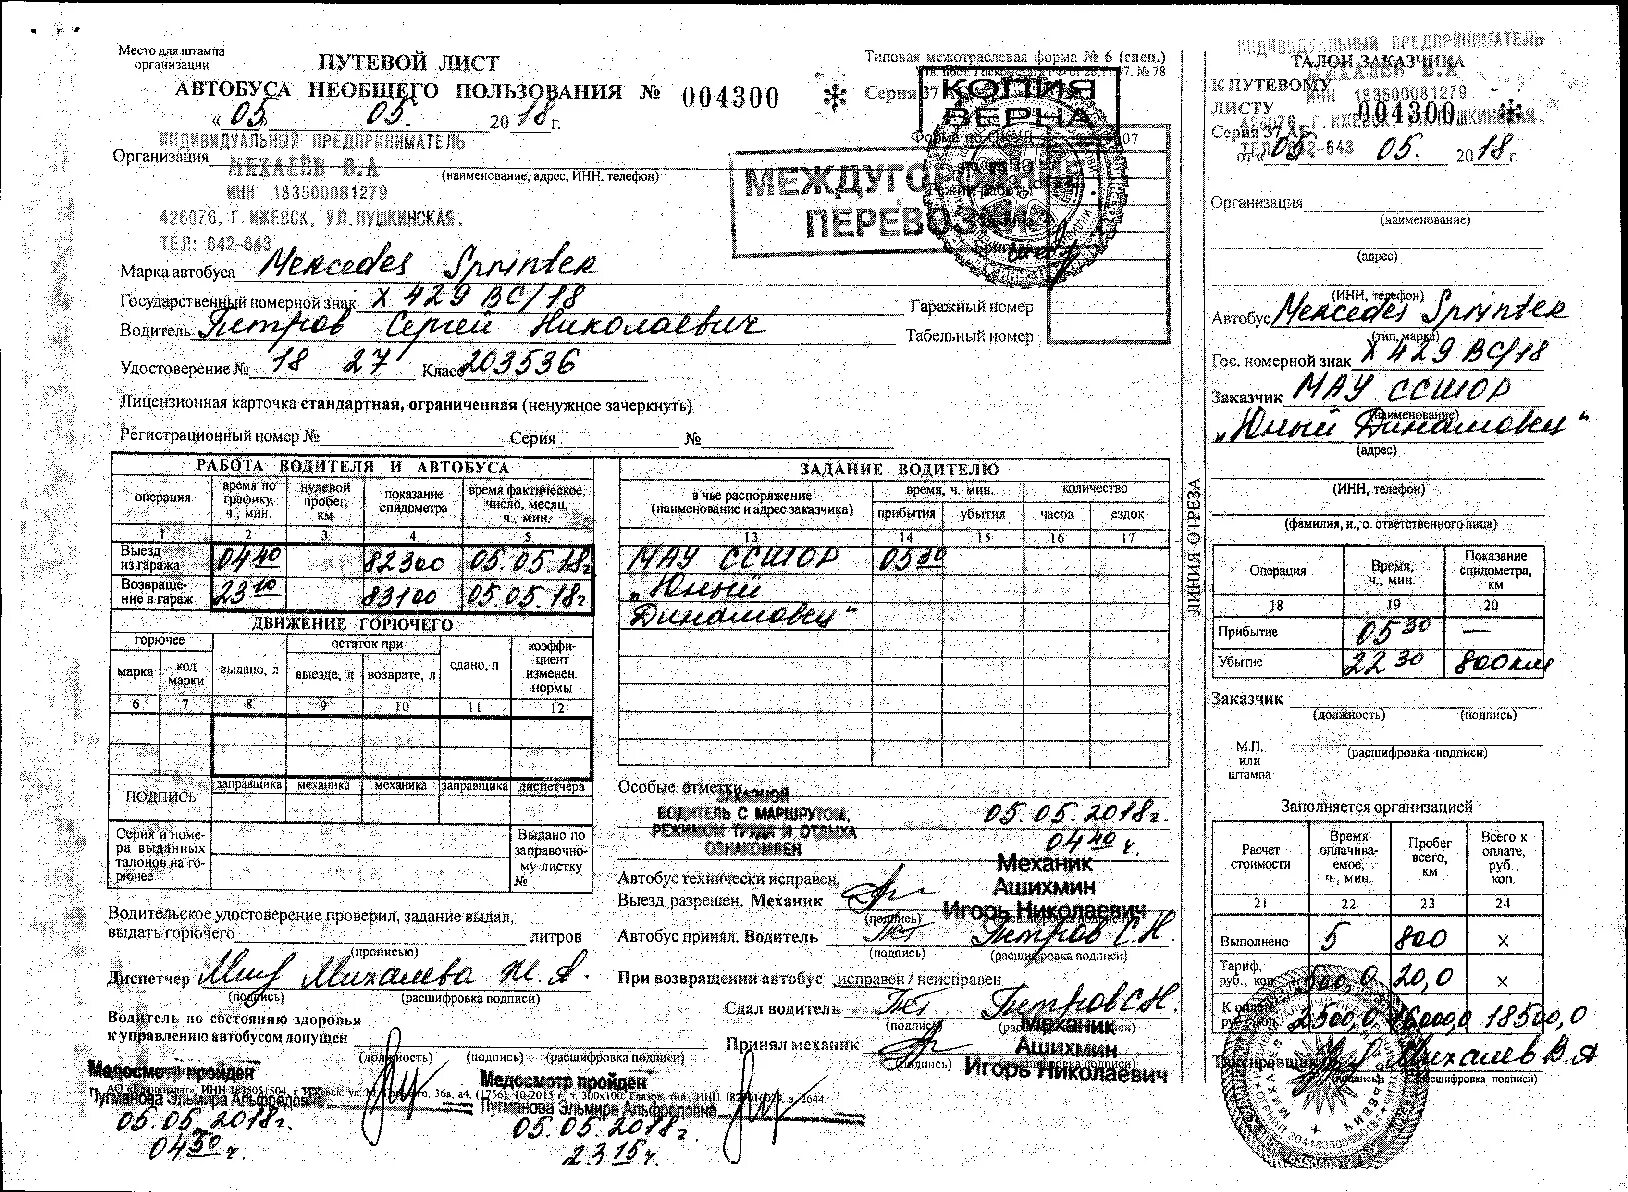 Место для штампа
организации
ПУТЕВОЙ ЛИСТ
АВТОБУСА НЕОБЩЕГО ПОЛЬЗОВАНИЯ № 004300
« 05 » 05. 2018 г.
Типовая межотраслевая форма № 6 (спец.)
Серия 37
КОПИЯ
ВЕРНА
МЕЖДУГОРОДНЫЕ
ПЕРЕВОЗКИ
ИНДИВИДУАЛЬНЫЙ ПРЕДПРИНИМАТЕЛЬ
Организация МЕХАЕВ В.А
(наименование, адрес, ИНН, телефон)
ИНН 183500081279
426076, Г. ИЖЕВСК, УЛ.ПУШКИНСКАЯ.
ТЕЛ: 642-643
Марка автобуса Mercedes Sprinter
Государственный номерной знак Х 429 ВС/18
Гаражный номер
Водитель Петров Сергей Николаевич
Табельный номер
Удостоверение № 18 27 Класс 203536
Лицензионная карточка стандартная, ограниченная (ненужное зачеркнуть)
Регистрационный номер № Серия №
РАБОТА ВОДИТЕЛЯ И АВТОБУСА
операция
время по графику, ч., мин.
нулевой пробег, км
показание спидометра
время фактическое, число, месяц, ч., мин.
1 2 3 4 5
Выезд из гаража 04 40 82300 05.05.18г
Возвращение в гараж 23 10 83100 05.05.18г
ДВИЖЕНИЕ ГОРЮЧЕГО
горючее
остаток при
коэффициент изменен. нормы
марка
код марки
выдано, л
выезде, л
возврате, л
сдано, л
6 7 8 9 10 11 12
ПОДПИСЬ
заправщика механика механика заправщика диспетчера
Серия и номера выданных талонов на горючее
Выдано по заправочному листку №
ЗАДАНИЕ ВОДИТЕЛЮ
в чье распоряжение
(наименование и адрес заказчика)
время, ч. мин.
количество
прибытия убытия часов ездок
13 14 15 16 17
МАУ ССШОР 05 30
„Юный
Динамовец“
Особые отметки
ЗАКАЗНОЙ
ВОДИТЕЛЬ С МАРШРУТОМ,
РЕЖИМОМ ТРУДА И ОТДЫХА
ОЗНАКОМЛЕН
05.05.2018г.
04 40 ч.
Автобус технически исправен.
Выезд разрешен. Механик
(подпись)
Механик
Ашихмин
Игорь Николаевич
Автобус принял. Водитель Петров С Н
(подпись) (расшифровка подписи)
При возвращении автобус исправен / неисправен
Сдал водитель Петров С Н.
(подпись)
Принял механик
(подпись)
Механик
Ашихмин
Игорь Николаевич
Водительское удостоверение проверил, задание выдал,
выдать горючего литров
(прописью)
Диспетчер Михалева Ж. А.
(подпись) (расшифровка подписи)
Водитель по состоянию здоровья
к управлению автобусом допущен
(должность) (подпись) (расшифровка подписи)
Медосмотр пройден
Эльмира Альфредовна
05.05.2018г.
04 30 ч.
Медосмотр пройден
Эльмира Альфредовна
05.05.2018г.
23 15 ч.
ЛИНИЯ ОТРЕЗА
ИНДИВИДУАЛЬНЫЙ ПРЕДПРИНИМАТЕЛЬ
ТАЛОН ЗАКАЗЧИКА
К ПУТЕВОМУ
ЛИСТУ 004300
ИНН 183500081279
Серия 37
от « 05 05. 2018 г.
Организация
(наименование)
(адрес)
(ИНН, телефон)
Автобус Mercedes Sprinter
(тип, марка)
Гос. номерной знак Х 429 ВС/18
Заказчик МАУ ССШОР
(наименование)
„Юный Динамовец“
(адрес)
(ИНН, телефон)
(фамилия, и., о. ответственного лица)
Операция
Время, ч., мин.
Показание спидометра, км
18 19 20
Прибытие 05 30 —
Убытие 22 30 800км
Заказчик
(должность) (подпись)
(расшифровка подписи)
М.П. или штампа
Заполняется организацией
Расчет стоимости
Время оплачиваемое, ч., мин.
Пробег всего, км
Всего к оплате, руб. коп.
21 22 23 24
Выполнено 5 800 х
Тариф, руб., коп. 500,0 20,0 х
2500,0 16000,0 18500,0
Михалев В. А
(расшифровка подписи)